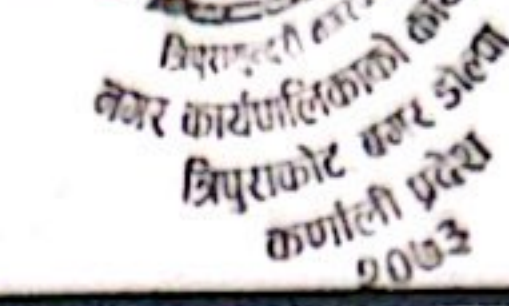 त्रिपुरासुन्दरी नगर
नगर कार्यपालिकाको
त्रिपुराकोट बगर डोल्पा
कर्णाली प्रदेश
२०७३